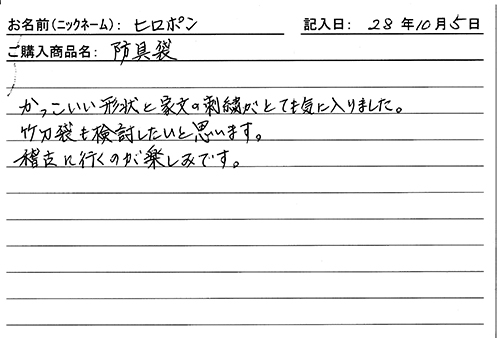 お名前(ニックネーム): ヒロポン 記入日: 28年10月5日
ご購入商品名: 防具袋
かっこいい形状と家文の刺繍がとても気に入りました。
竹刀袋も検討したいと思います。
稽古に行くのが楽しみです。